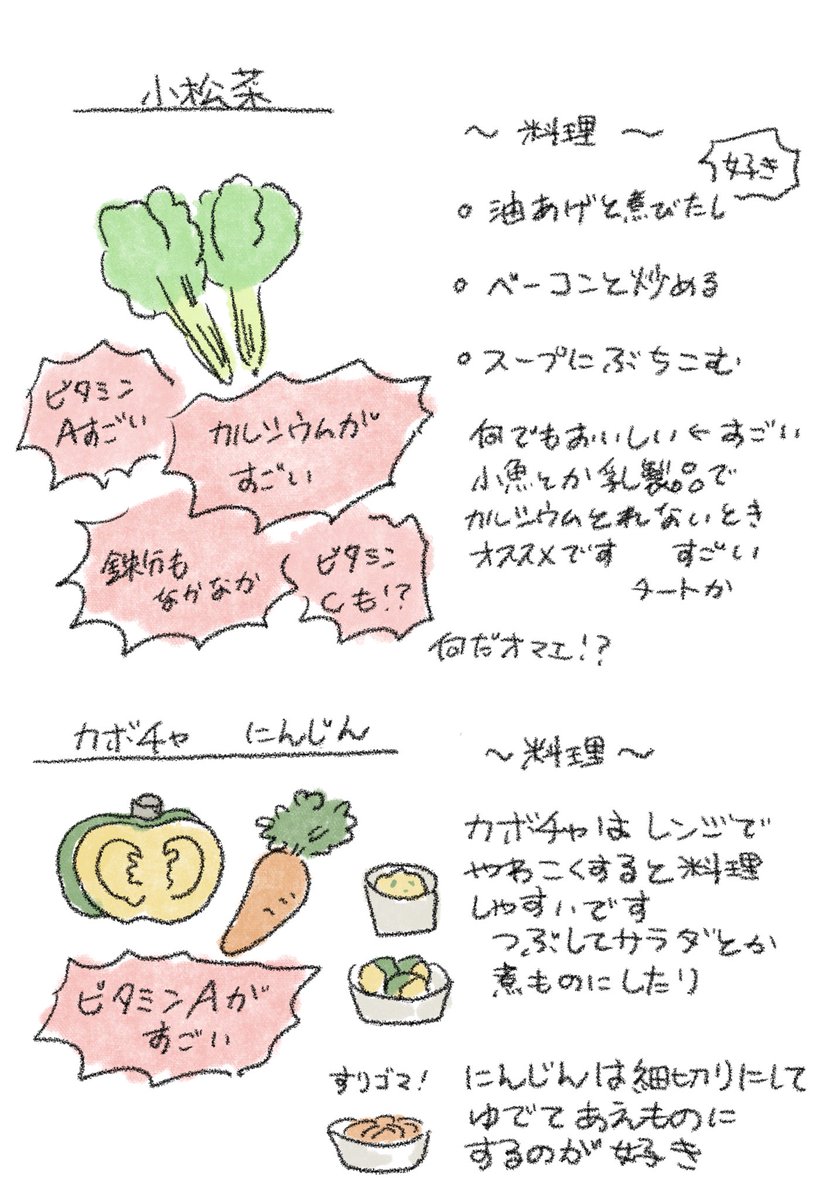 小松菜
ビタミン
Aすごい
カルシウムが
すごい
鉄分も
なかなか
ビタミン
Cも!?
～ 料理 ～
好き
油あげと煮びたし
ベーコンと炒める
スープにぶちこむ
何でもおいしい←すごい
小魚とか乳製品で
カルシウムとれないとき
オススメです すごい
チートか
何だオマエ!?
カボチャ にんじん
ビタミンAが
すごい
～料理～
カボチャはレンジで
やわこくすると料理
しやすいです
つぶしてサラダとか
煮ものにしたり
すりゴマ!
にんじんは細切りにして
ゆでてあえものに
するのが好き